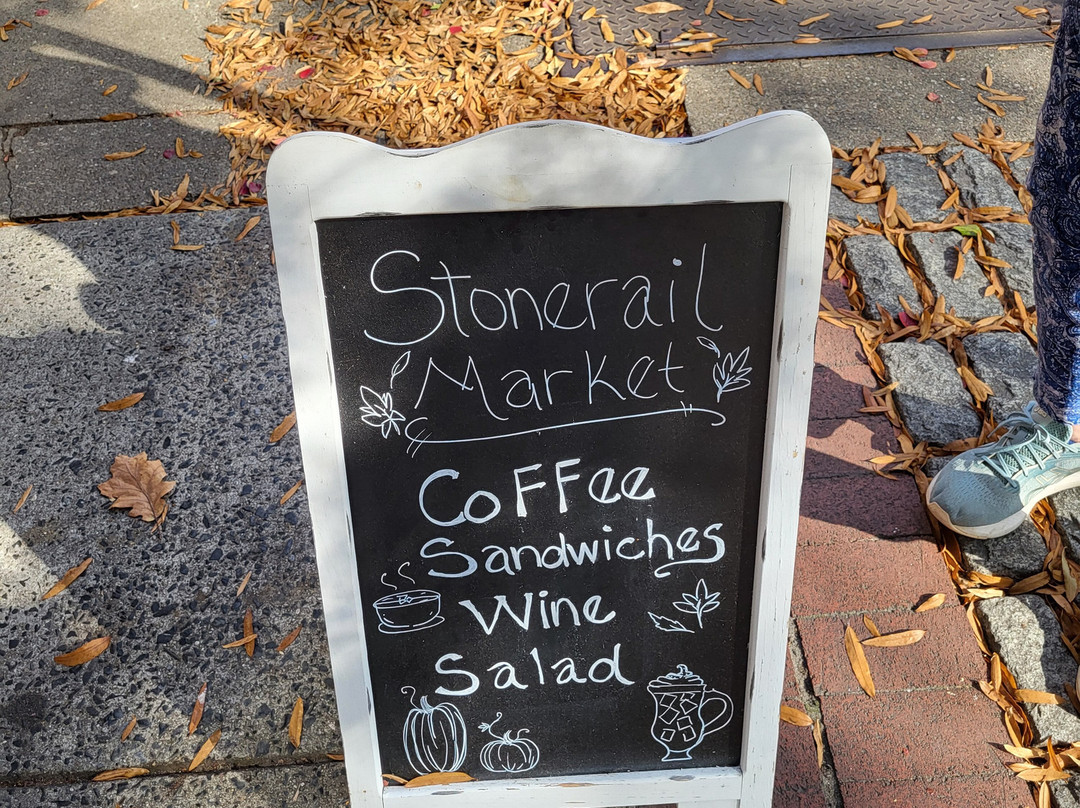 Stonerail
Market
Coffee
Sandwiches
Wine
Salad